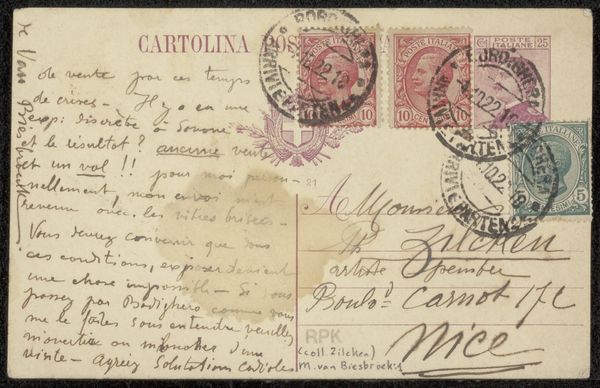 CARTOLINA POS
POSTE ITALIANE 25
POSTE ITALIANE
10 CENTESIMI 10
POSTE ITALIANE
10 CENTESIMI 10
POSTE ITALIANE
CENTESIMI 5
BORDIGHERA
BORDIGHERA
de vente par ces temps
de crises - Il y a eu une
expi discrète à Savone
et le résultat? aucune vente
et un vol!! pour moi person-
nellement, mon envoi m'est
revenu avec les vitres brisées -
Vous devez convenir que dans
ces conditions, exposer devient
une chose impossible - Si vous
passez par Bordighera comme vous
me le faites sous entendre, veuillez
m'avertir ou d'une
visite - Agréez Salutations cordiales
M Van Biesbroeck
21
A Monsieur
Ph Zilcken
artiste peintre
Boulᵈ Carnot 172
Nice
RPK
(coll. Zilcken)
M. van Biesbroeck 1